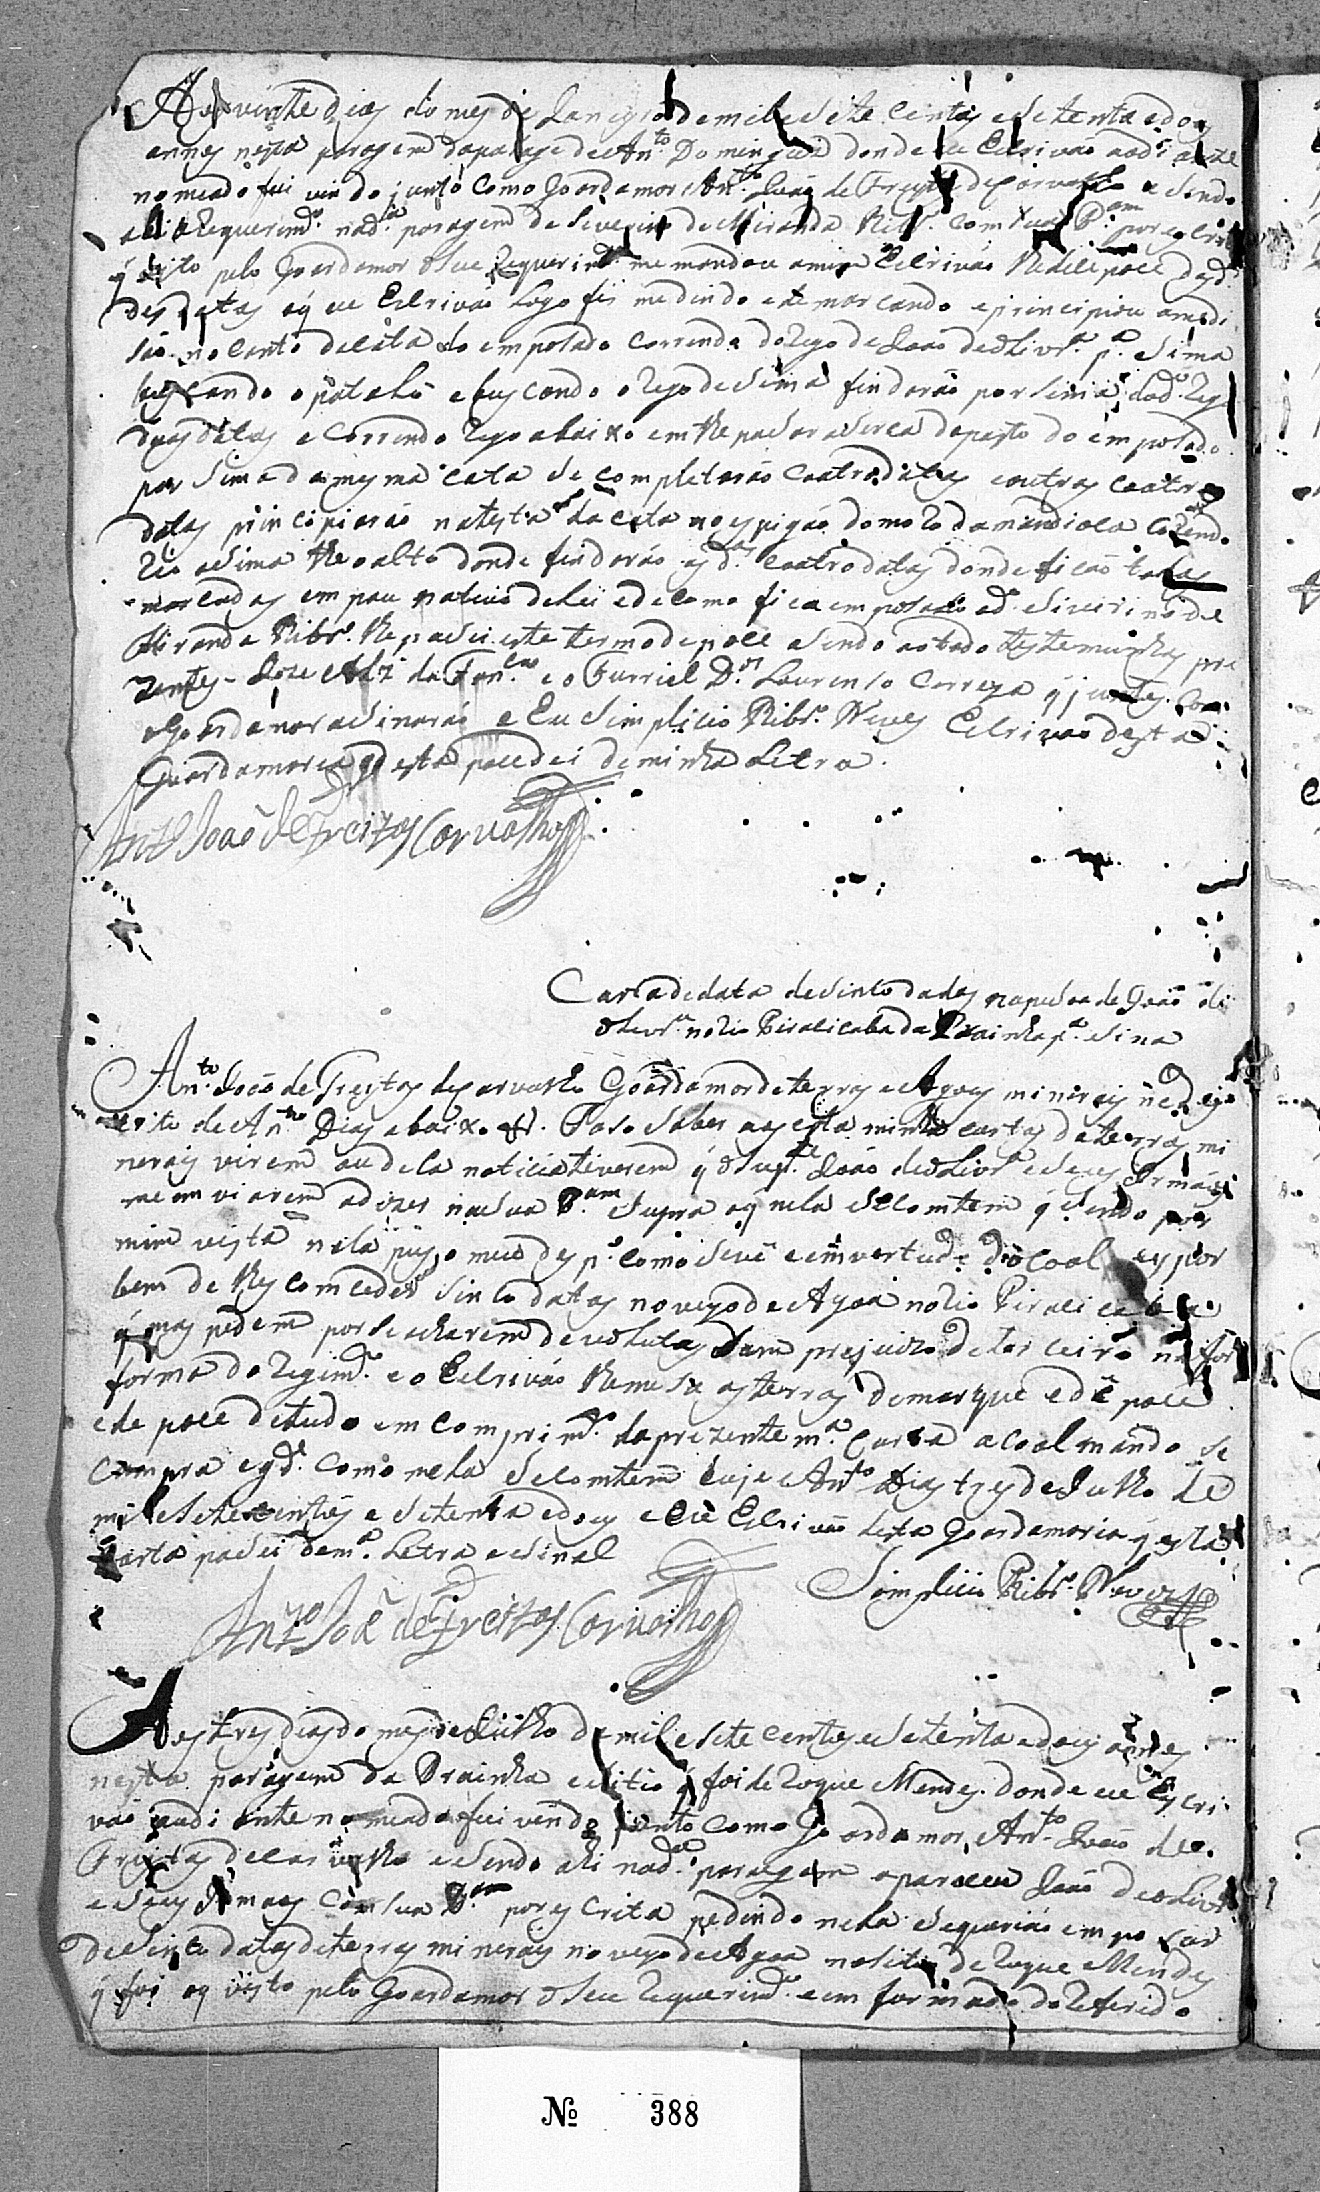 Aos vinte dias do mes de Janeyro de mil e sete centos e setenta e doys
annos nesta paragem da pasage de Anto. Domingues donde eu Escrivão aodiante
nomeado fui vindo junto com o Goardamor Anto. João de Freytas de Carvalho e sendo
ahi Requerimdo. nada. poragem de Siverino de Miranda Ribro. com sua Pam por escrito
q visto pelo Goardamor o seu Requerimto. me mandou a mim Escrivão lhe dese pose das ditas
des datas o q eu Escrivão Logo fis medindo e demarcando e principiou a medi
são no canto da cata do emposado correndo do Rego de João de oLivra. pa. sima
buscando o patahu e buscando o Rego de sima findarão por sima do do. Rego
duas datas e correndo Rego abaixo em the pasar a serca da parte do emposado
por sima da mesma cata se completarão coatro datas e outras coatro
datas principiarão na testa da cata no espigão do moro da mandioca correndo
Rio asima the o alto donde findarão as das. coatro datas donde ficão todas
marcadas em pau nativo de Lei e de como fica emposado o do. Siveirino de
Miranda Ribro. lhe pasei este termo de pose sendo a todo testemunhas pre
zentes - Joze Alz da Fonca. e o Furriel Dos. Lourenso Correya q juntos com
o Goardamor asinarão e Eu Simplicio Ribro. Neves Escrivão desta
Guardamoria q esta pose dei de minha Letra.
Anto João de Freitas Carvalho
Carta de data de sinto datas na pesoa de João de
oLivra. no Rio Piracicaba da Prainha pa. sima
Anto. João de Freytas de Carvalho Goardamor de terras e Agoas minerais nes de
srito de Anto. Dias abaixo &. Faso saber aos q esta minha carta de terras mi
nerais virem ou dela noticia tiverem q o supte. João de oLivra e seus Irmãos
me inviarem a dizer na sua Pam supra o q nela se comtem q sendo por
mim vista nela pus o meu desp.o como se ve e em vertude do coal ey por
bem de lhes comceder sinco datas no veyo de Agoa no Rio Piracicaba
q mas pedem por se acharem devolutas sem prejuizo de terceiro na for
forma do Regimto. e o Escrivão lhe mesa as terras demarque e dê pose
e de pose de tudo em comprimto. da prezente ma. Carta a coal mando se
cumpra e gde. como nela se comtem ouje Anto Dias tres de Julho de
mil e setecentos e setenta e doys e Eu Escrivão desta Goardamoria q esta
Carta pasei de ma. Letra e sinal
Simplicio Ribro. Neves
Anto João de Freitas Carvalho
Aos tres dias do mes de Julho de mil e sete centos e setenta e doys annos
nesta paragem da Prainha e sitio q foi de Roque Mendes donde eu Escri
vão aodiante nomeado fui vindo junto com o Goardamor Anto João de
Freitas de Carvalho e sendo ahi nada. paragem apareceu João de oLivra.
e seus Irmaos com sua Pam por escrita pedindo nela se queriáo emposar
de sinto datas de terras minerais no veyo de Agoa no sitio de Roque Mendes
q foi o q visto pelo Goardamor o seu Requerimto. e em formado do Referido
№ 388